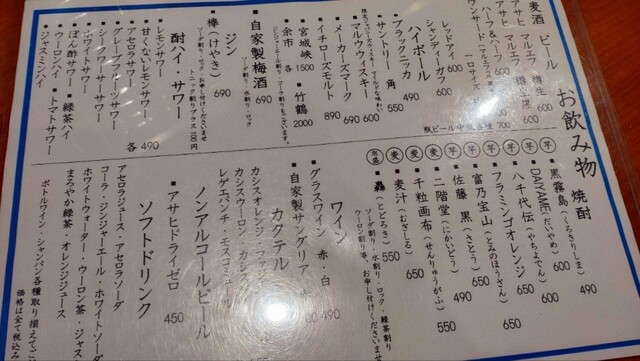 お飲み物
麦酒 ビール
アサヒ マルエフ
アサヒ マルエフ
ハーフ&ハーフ 600
シャンディーガフ 600
レッドアイ 600
瓶ビール中瓶各種 700
ハイボール
・ブラックニッカ 490
・サントリー 角 550
・マルウウィスキー 600
・メーカーズマーク 690
・イチローズモルト 890
・宮城峡 1500
・竹鶴 2000
・余市 各
・自家製梅酒 690
ソーダ割り・水割り・ロック
ジン
・欅(けやき) 690
ソーダ割り・ロック・お申し付けくださいませ
トニック割りプラス100円
酎ハイ・サワー
・レモンサワー
・甘くないレモンサワー
・アセロラサワー
・グレープフルーツサワー
・シークワーサーサワー
・ホワイトサワー
・ぽん酢サワー
・ウーロンハイ
・ジャスミンハイ
・緑茶ハイ
・トマトサワー
各490
焼酎
芋 黒霧島(くろきりしま) 490
芋 DAIYAME(だいやめ) 600
芋 八千代伝(やちよでん) 650
芋 フラミンゴオレンジ 650
芋 富乃宝山(とみのほうざん) 650
芋 佐藤 黒(さとう) 650
麦 二階堂(にかいどう) 490
麦 千粒画布(せんりゅうがふ) 550
麦 麦汁(むぎしる) 650
泡盛 轟(とどろき) 550
ソーダ割り・水割り・ロック・緑茶割り
ウーロン割り等、お申し付けくださいませ
ワイン
・グラスワイン 赤・白 490
・自家製サングリア 赤
カクテル
カシスオレンジ・ファジ
カシスウーロン・カシス
レゲエパンチ・モスコミュール
ノンアルコールビール
・アサヒドライゼロ 450
ソフトドリンク
アセロラジュース・アセロラソーダ
コーラ・ジンジャーエール・ホワイトソーダ
ホワイトウォーター・ウーロン茶・ジャス
まろやか緑茶・オレンジジュース
ボトルワイン・シャンパン各種取り揃えてご
価格は全て税込み